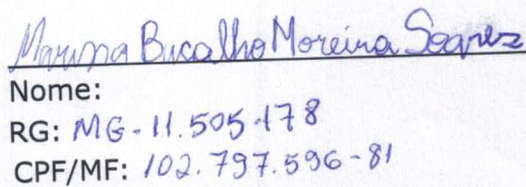 Marina Bucalho Moreira Soares
Nome:
RG: MG-11.505.178
CPF/MF: 102.797.596-81